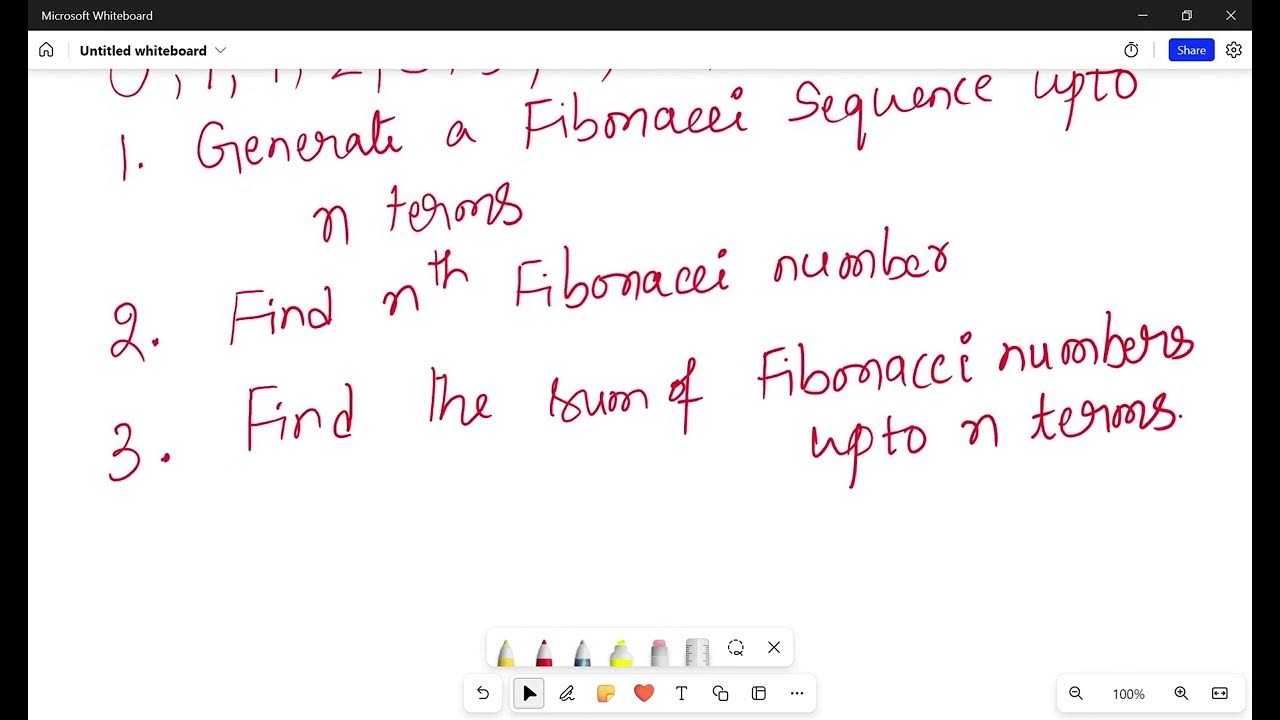 Microsoft Whiteboard
Untitled whiteboard
Share
1. Generate a Fibonacci Sequence upto
n terms
2. Find nth Fibonacci number
3. Find the sum of Fibonacci numbers
upto n terms.
T
100%